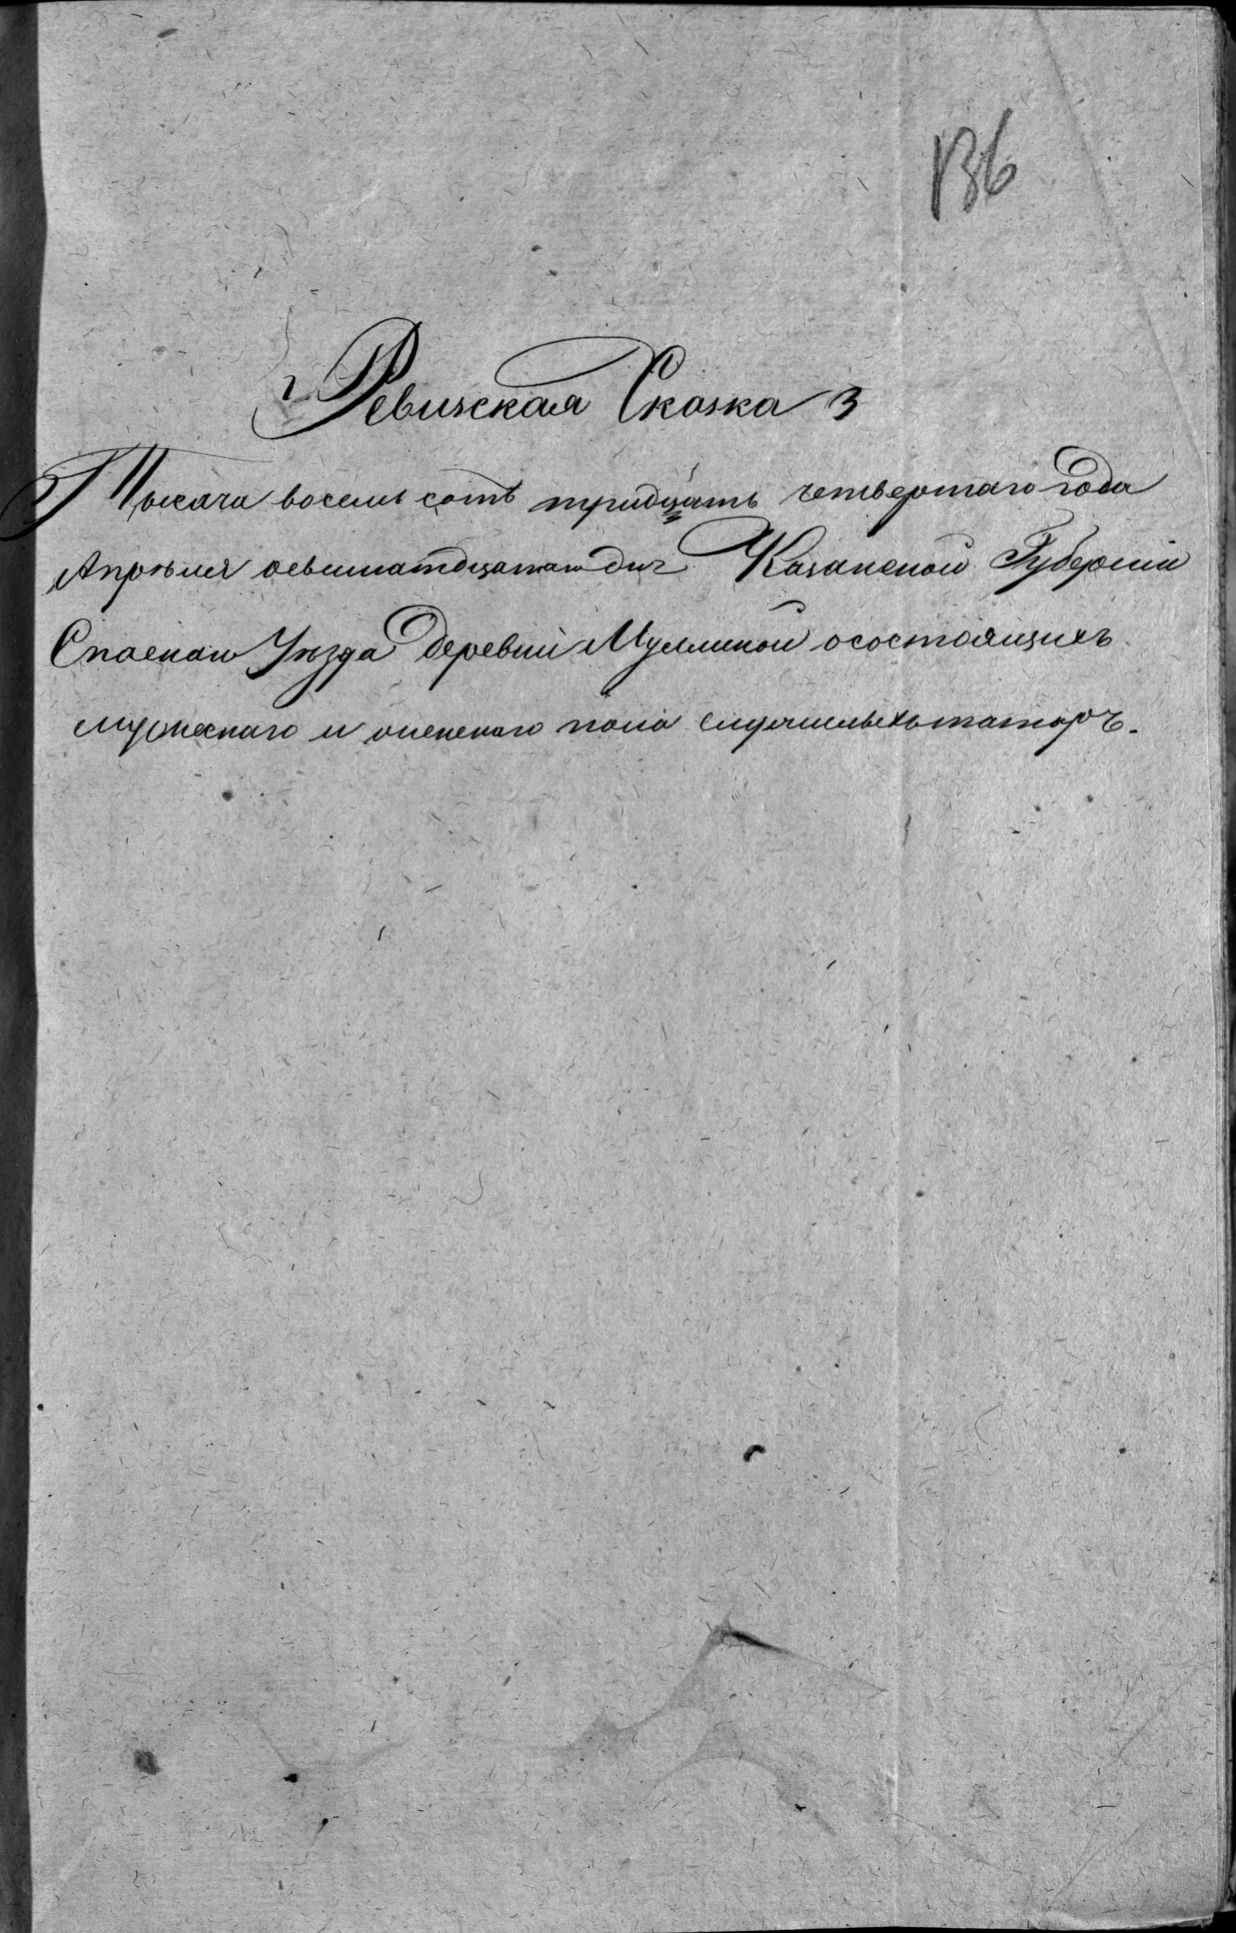 136
Ревизская Сказка
Тысяча восемь сотъ тридцать четвертаго года
Апрѣля девятнатцатаго дня Казанской Губерніи
Спаскаго Уѣзда Деревни Муллиной о состоящихъ
мужескаго и женскаго пола служилыхъ татаръ.